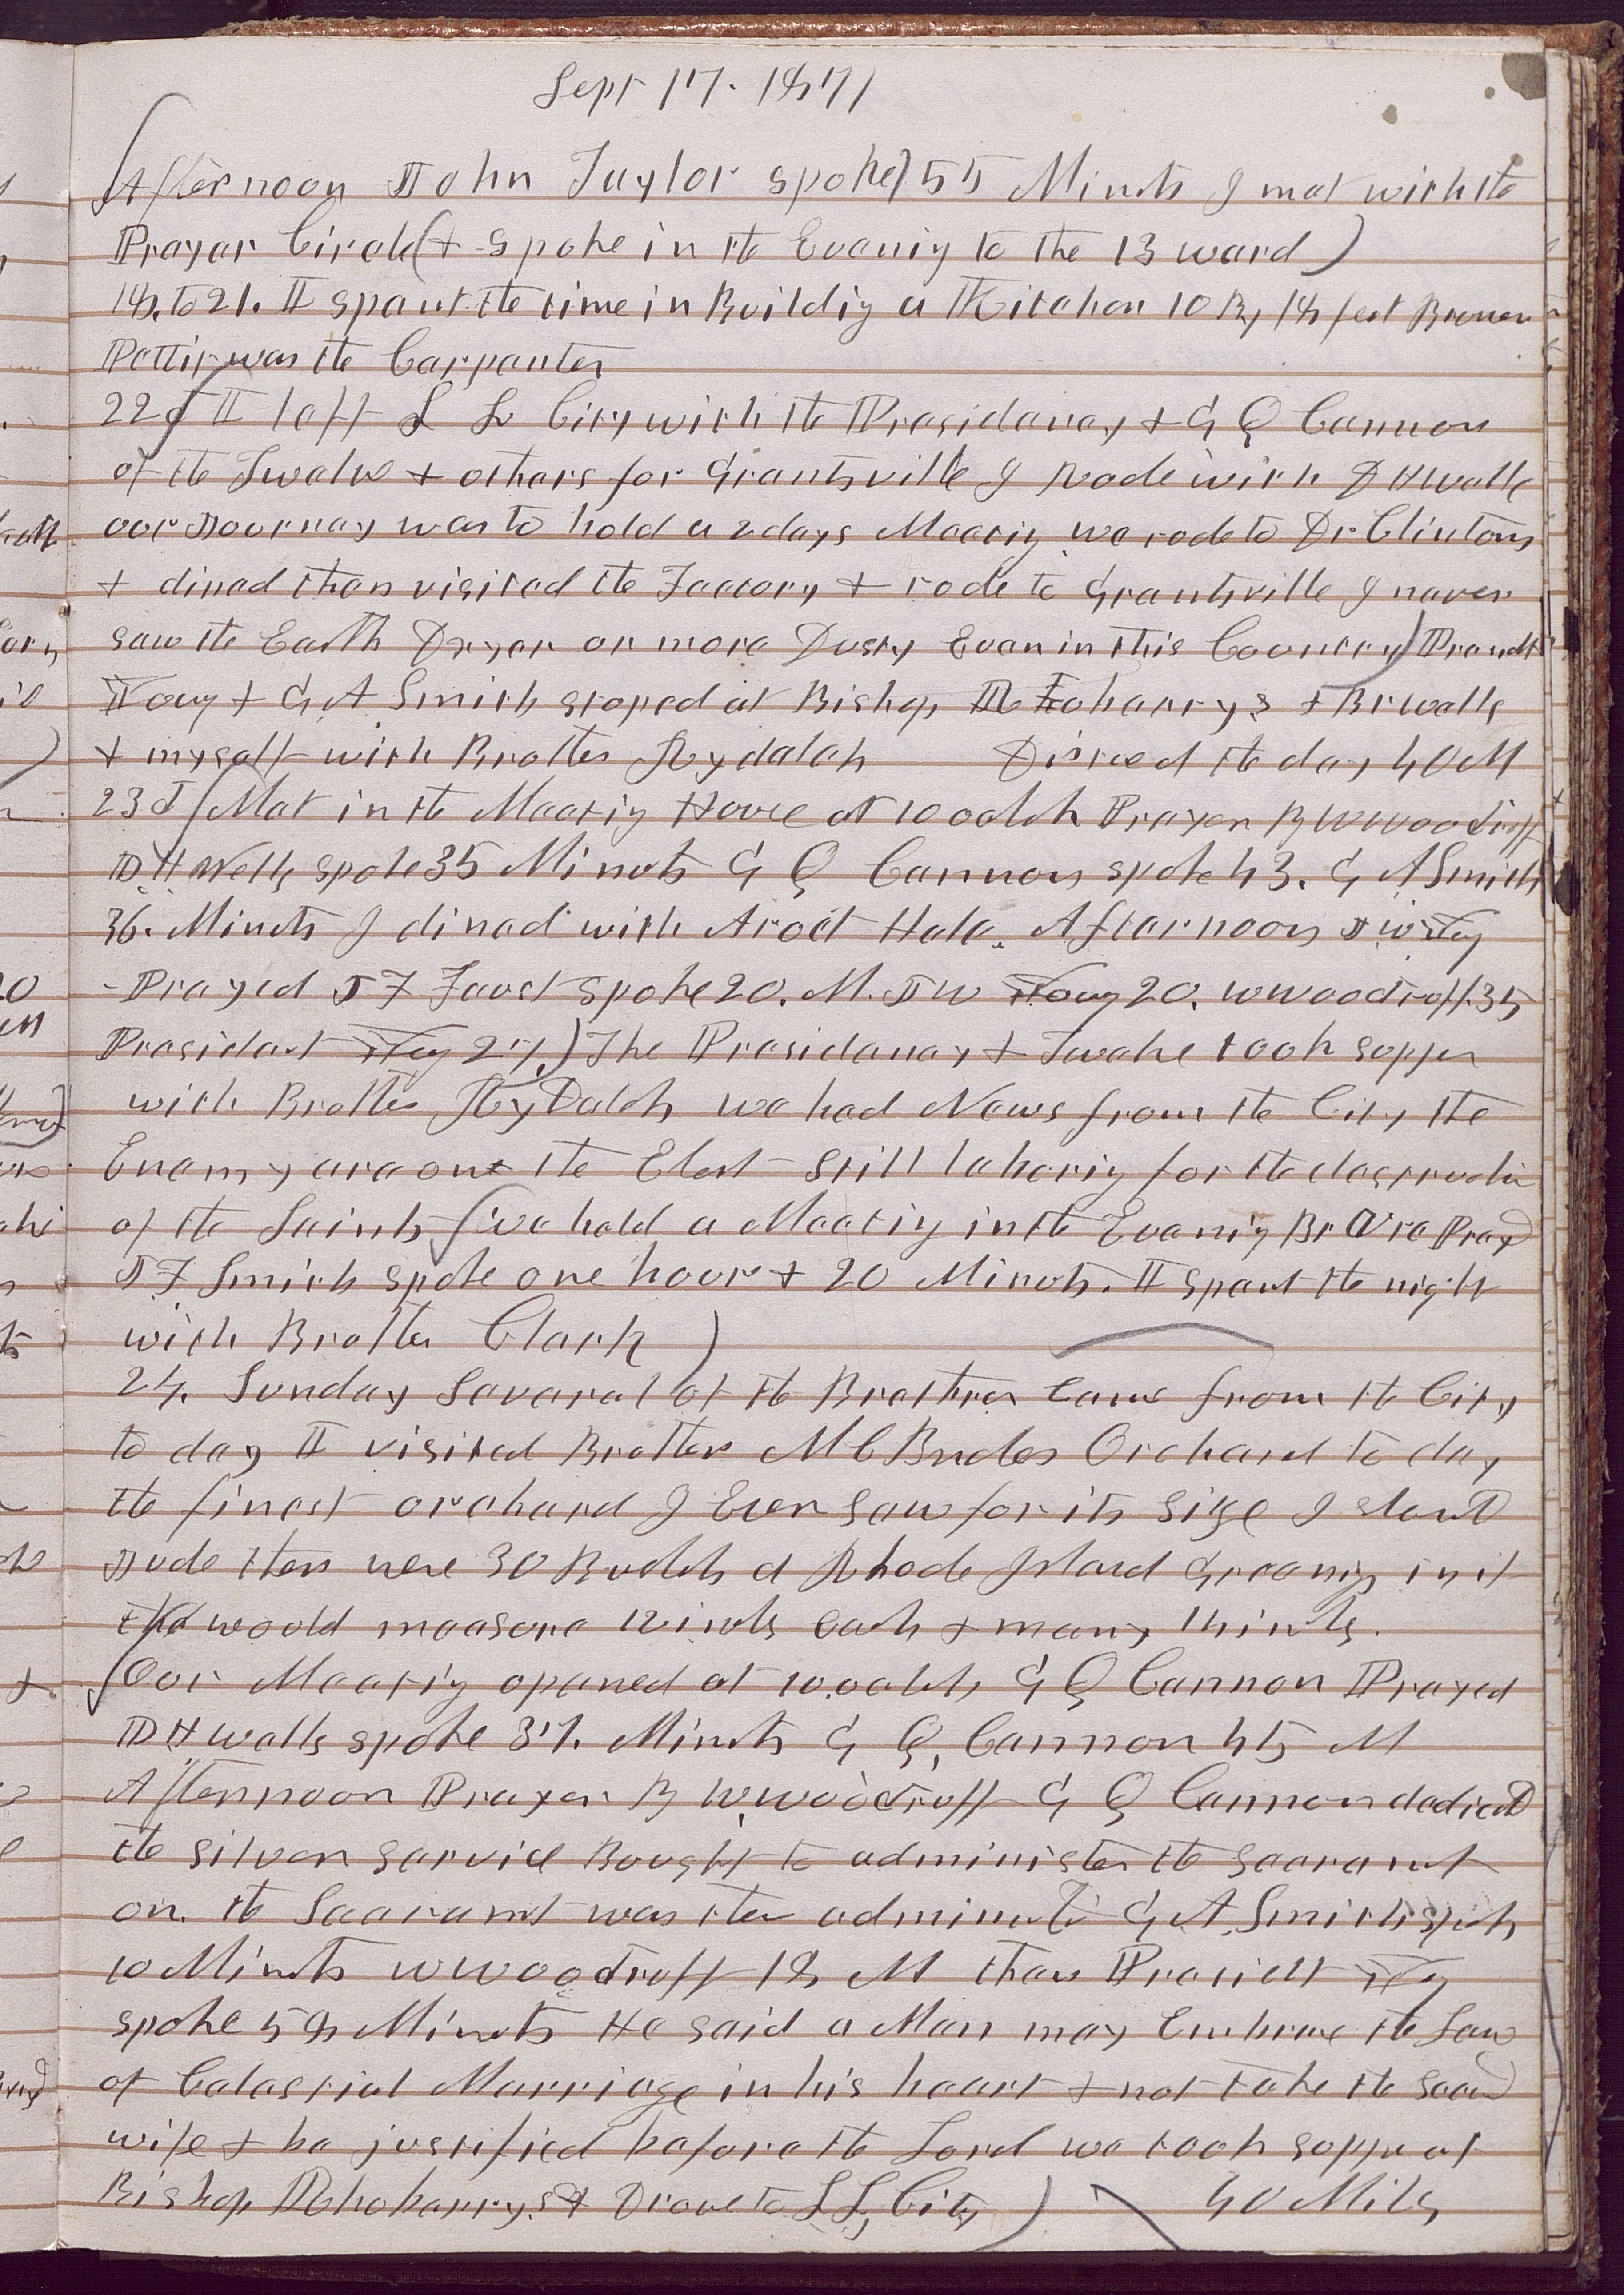 Sept 17. 1871
Afternoon John Taylor spoke 55 Minuts I met with the
Prayer Circle (& spoke in the Evening to the 13 ward)
18. to 21. I spent the time in Building a Kitchen 10 By 18 feet Bremen
Pettit was the Carpenter
22d I left S L City with the Presidency & G Q Cannon
of the Twelve & others for Grantsville I Rode with D H wells
our Journey was to hold a 2 days Meeting we rode to Dr Clintons
& dined then visited the Factory & rode to Grantsville I never
saw the Earth Dryer or more Dusty Even in this Country) Presidt
Young & G A Smith stoped at Bishop Rohberrys & Br wells
& myself with Brother Rydalch Distced the day 40 M
23d (Met in the Meeting House at 10 oclok Prayer By W Woodruff
D H Wells spoke 35 Minuts G Q Cannon spoke 43. G A Smith
36. Minuts I dined with Aroet Hale. Afternoon J W Yg
Prayed J F Faust spoke 20. M. J W Young 20. W Woodruff. 35
President Yg 27.) The Presidency & Twelve took supper
with Brother RyDalch we had News from the City the
Enemy are on the Elert still laboring for the destructin
of the Saints (we held a Meeting in the Evening Br Ure Prayd
J F Smith spoke one hour & 20 Minuts. I spent the night
with Brother Clark)
24. Sunday Several of the Brethren Came from the City
to day I visited Brother McBrides Orchard to day
the finest orchard I Ever saw for its size I should
Jude ther were 30 Bushels of Rhode Island Greening in it
that would measure 12 inches each & many 14 inches.
(Our Meeting opened at 10. oclok G Q Cannon Prayed
D H wells spoke 37. Minuts G Q, Cannon 45 M
Afternoon Prayer By W. Woodruff G Q Cannon dedicatd
the silver servive Bought to administer the Sacrament
on. the Sacramet was then adminsted G A Smith spoke
10 Minuts W Woodruff 18 M then Presidt Yg
spoke 58 Minuts He said a Man may Embrace the Law
of Celestial Marriage in his heart & not take the Second
wife & be justified before the Lord we took supper at
Bishop Rohberrys. & Drove to S L, City) 40 Miles